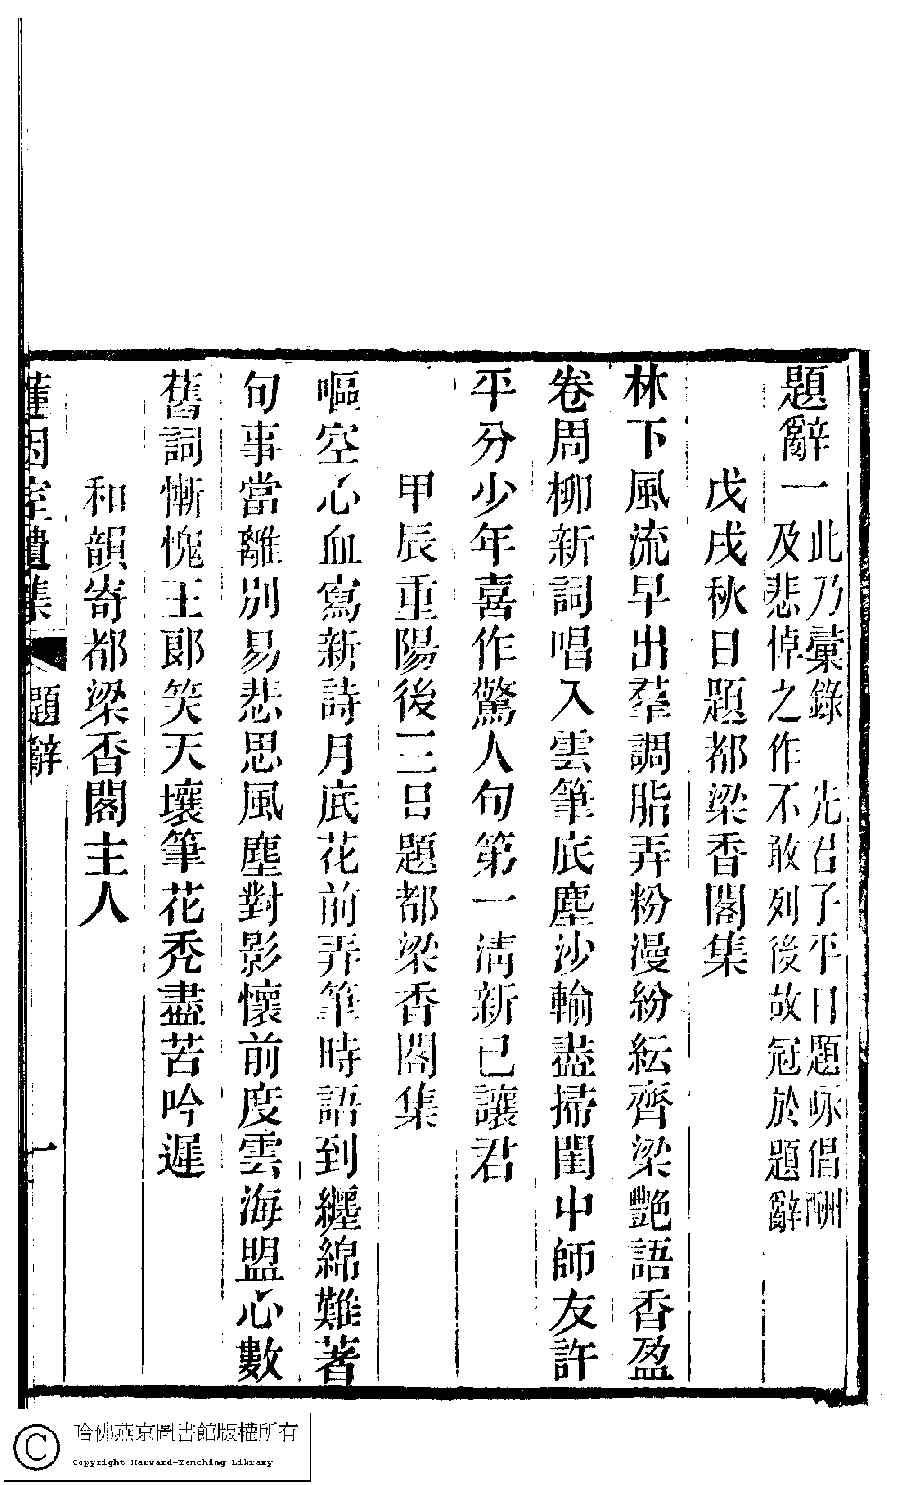 題辭一
此乃彙錄　先君子平日題咏倡酬
及悲悼之作不敢列後故冠於題辭
戊戌秋日題都梁香閣集
林下風流早出羣調脂弄粉漫紛紜齊梁艷語香盈
卷周柳新詞唱入雲筆底塵沙輸盡掃閨中師友許
平分少年喜作驚人句第一清新已讓君
甲辰重陽後三日題都梁香閣集
嘔空心血寫新詩月底花前弄筆時語到纏綿難著
句事當離別易悲思風塵對影懷前度雲海盟心數
舊詞慚愧王郎笑天壤筆花禿盡苦吟遲
和韻寄都梁香閣主人
蓮因室遺集
題辭
一
哈佛燕京圖書館版權所有
Copyright Harvard-Yenching Library